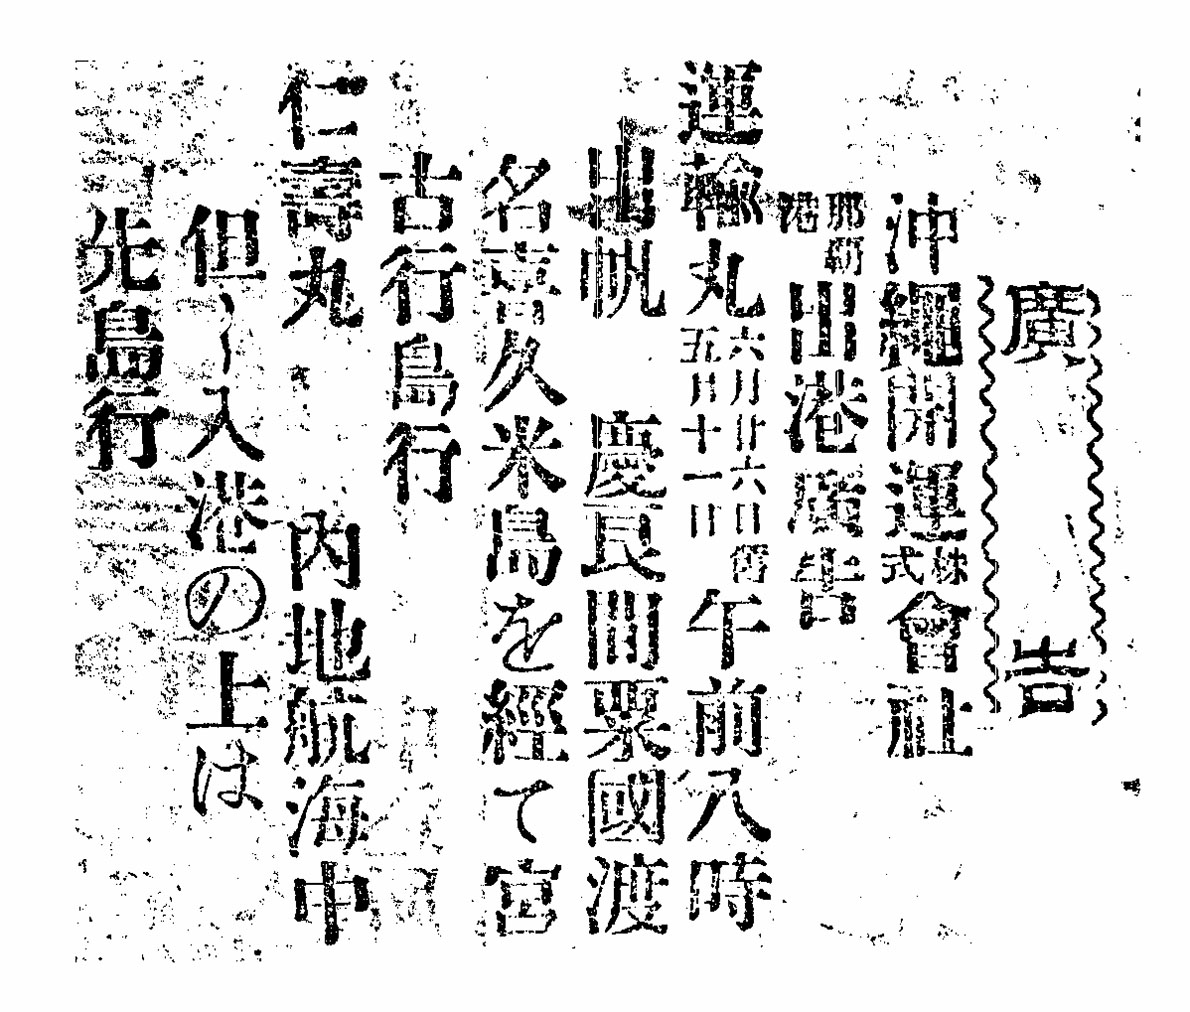 廣告
沖縄開運株式會社
那覇港出港廣告
運輸丸六月廿六日舊五月十一日午前八時
出帆　慶良間粟國渡
名喜久米島を經て宮
古行島行
仁壽丸　内地航海中
但し入港の上は
先島行